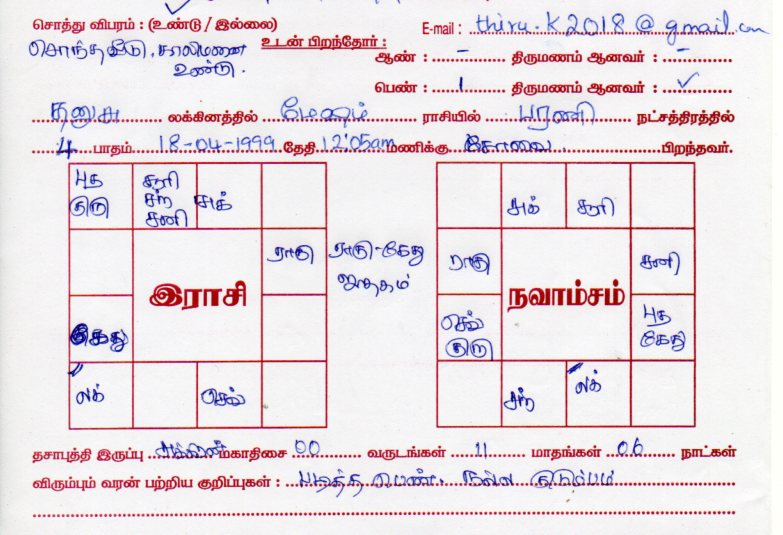 சொத்து விபரம் : (உண்டு / இல்லை) E-mail : thiru.k2018@gmail.com
சொந்த வீடு, காலிமனை உடன் பிறந்தோர் :
உண்டு. ஆண் : – திருமணம் ஆனவர் : –
பெண் : 1 திருமணம் ஆனவர் : ✓
தனுசு லக்கினத்தில் மேஷம் ராசியில் பரணி நட்சத்திரத்தில்
4 பாதம் 18-04-1999 தேதி 12:05am மணிக்கு கோவை பிறந்தவர்.
புத குரு
சூரி சந் சனி
சுக்
ராகு
ராகு-கேது ஜாதகம்
இராசி
கேது
லக்
செவ்
சுக்
சூரி
ராகு
சனி
நவாம்சம்
செவ் குரு
புத கேது
சந்
லக்
தசாபுத்தி இருப்பு சுக்கிரன் மகாதிசை 00 வருடங்கள் 11 மாதங்கள் 06 நாட்கள்
விரும்பும் வரன் பற்றிய குறிப்புகள் : படித்த பெண். நல்ல குடும்பம்